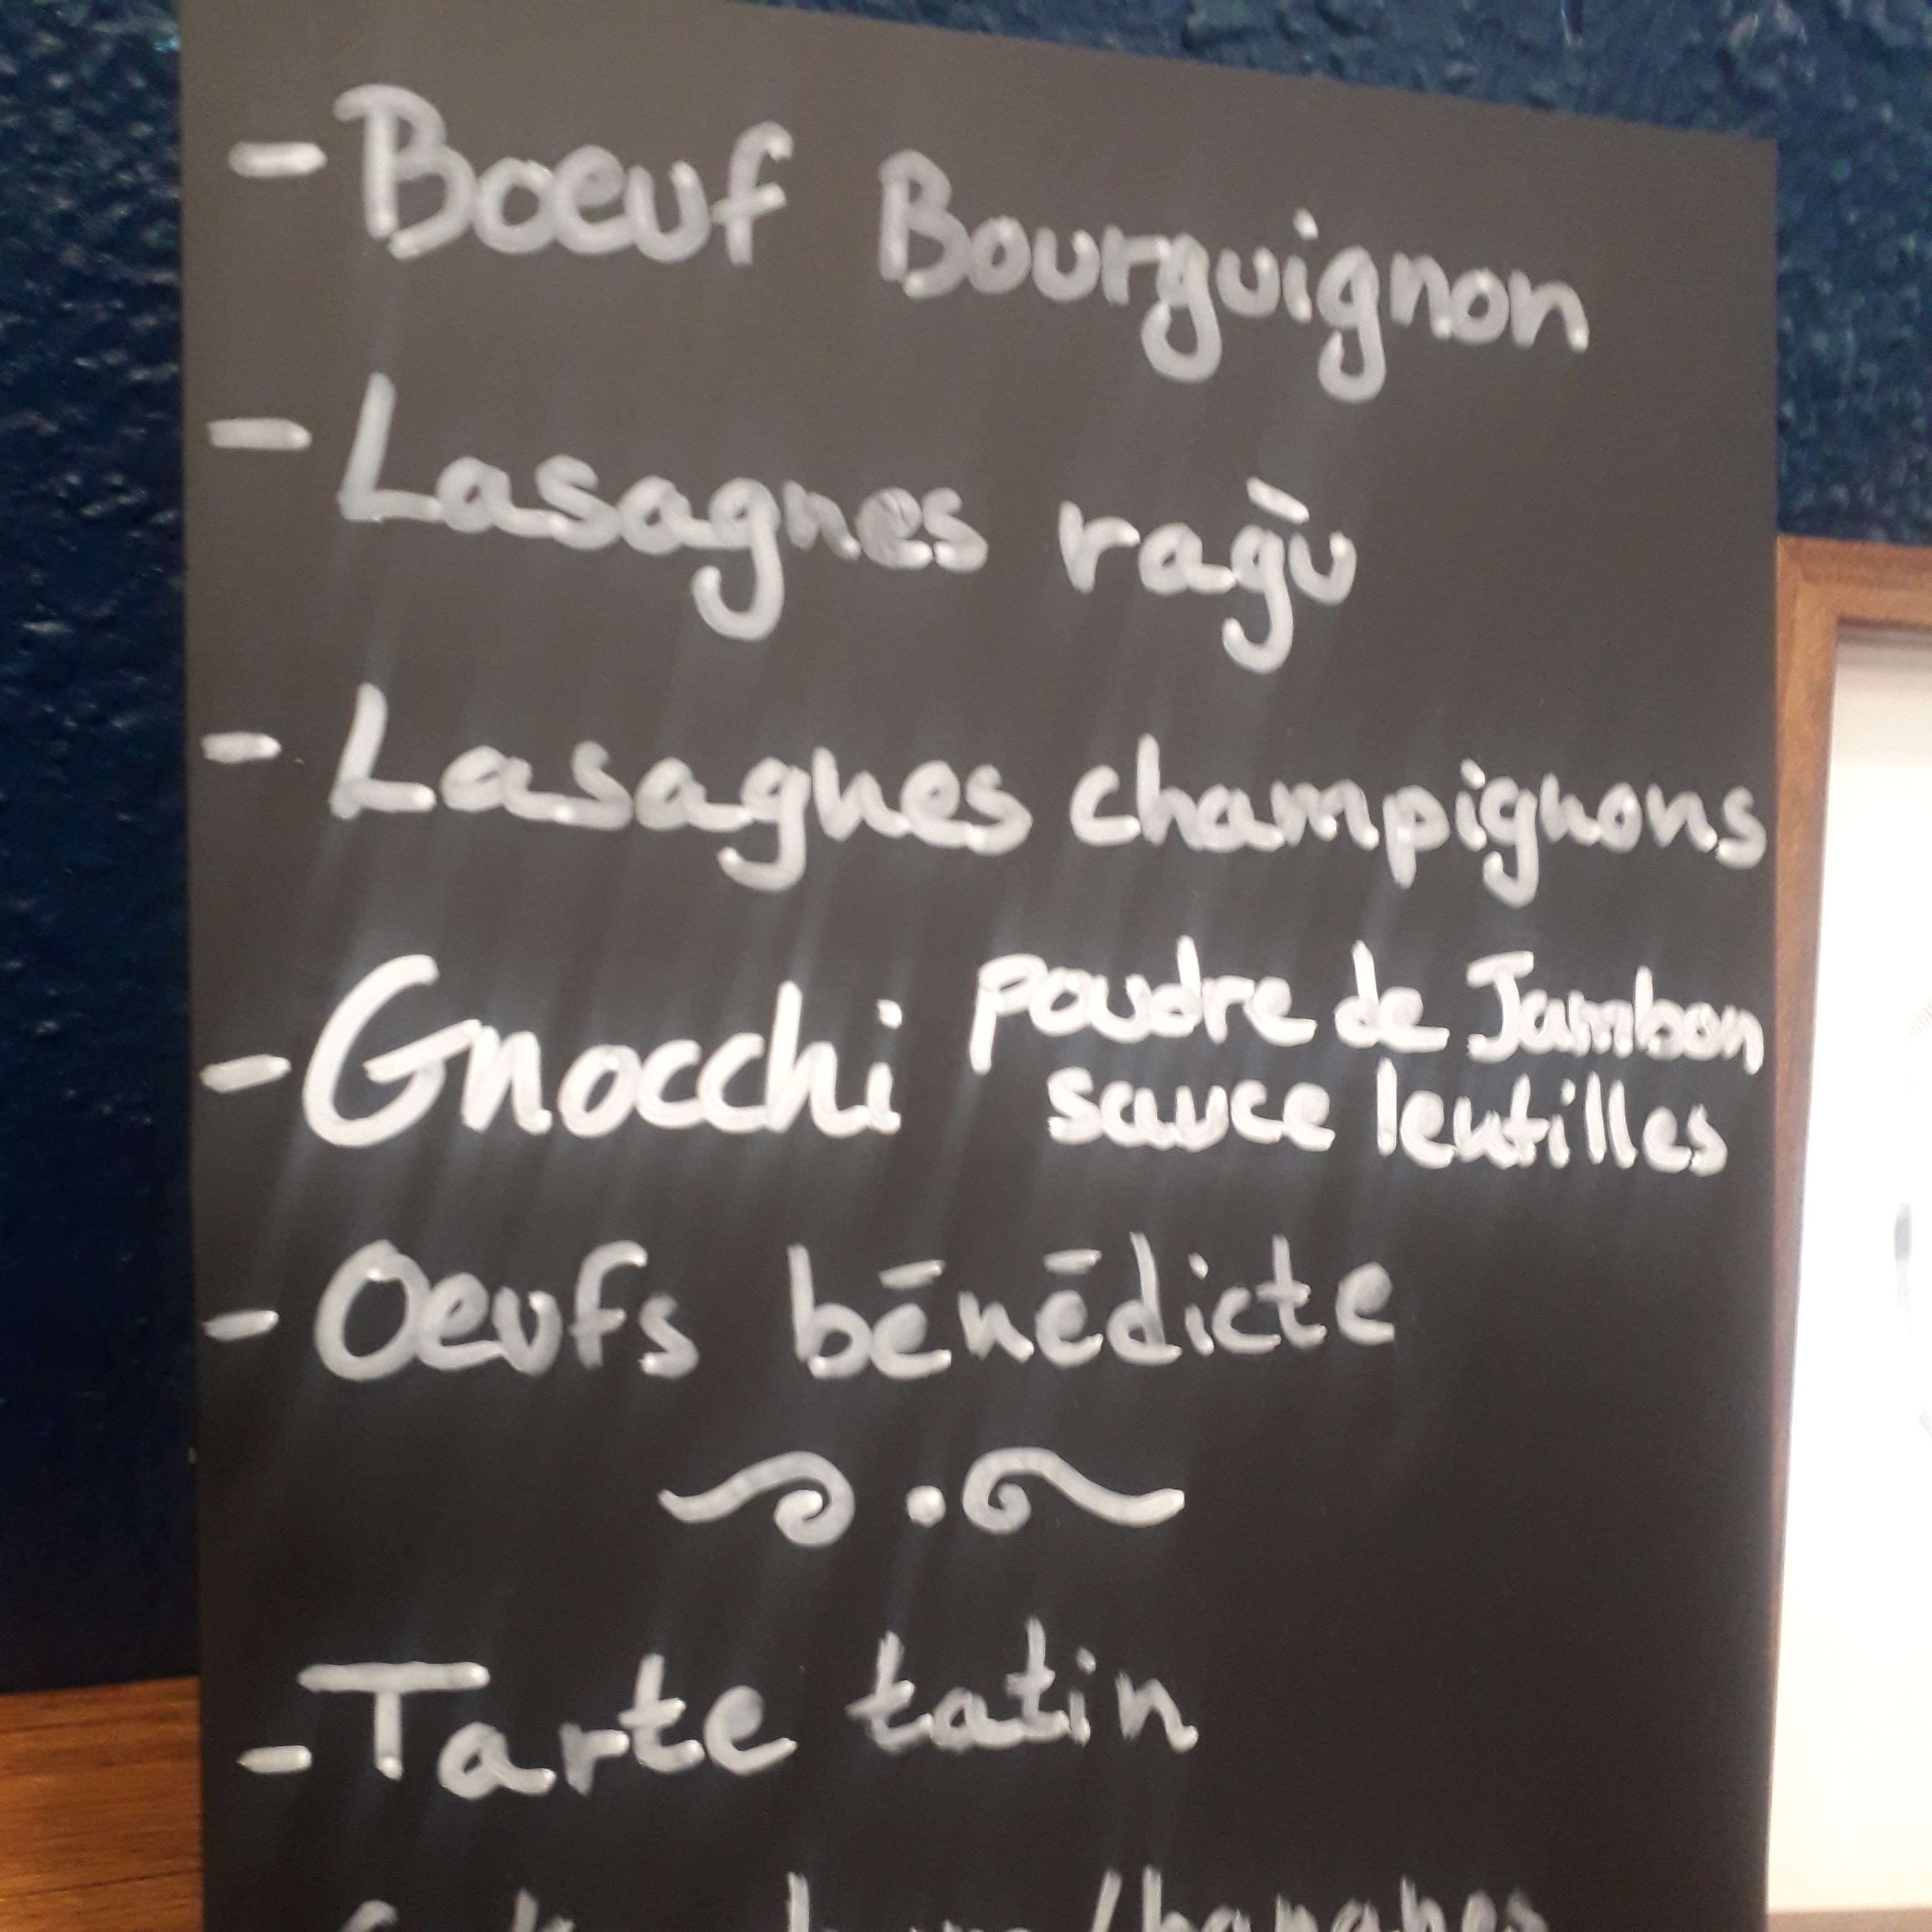 - Boeuf Bourguignon
- Lasagnes ragù
- Lasagnes champignons
- Gnocchi poudre de Jambon
sauce lentilles
- Oeufs bénédicte
- Tarte tatin